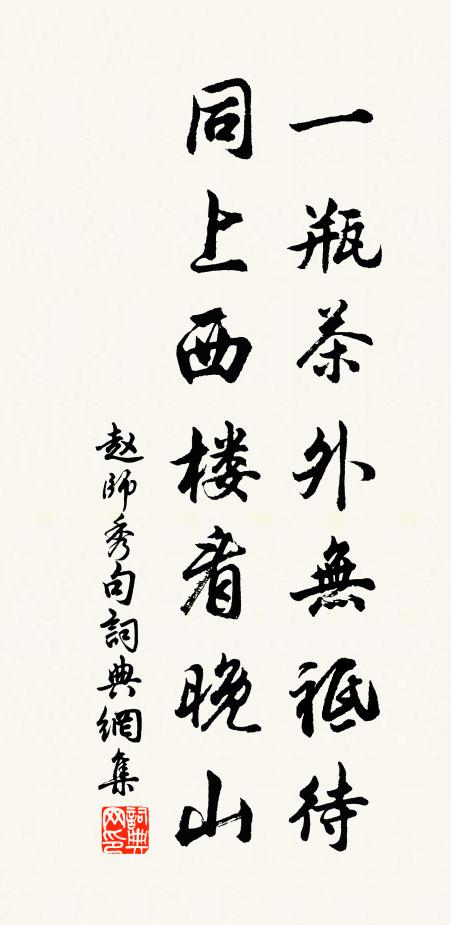 一瓶茶外無祗待
同上西楼看晚山
赵師秀句詞典網集
詞典
网印